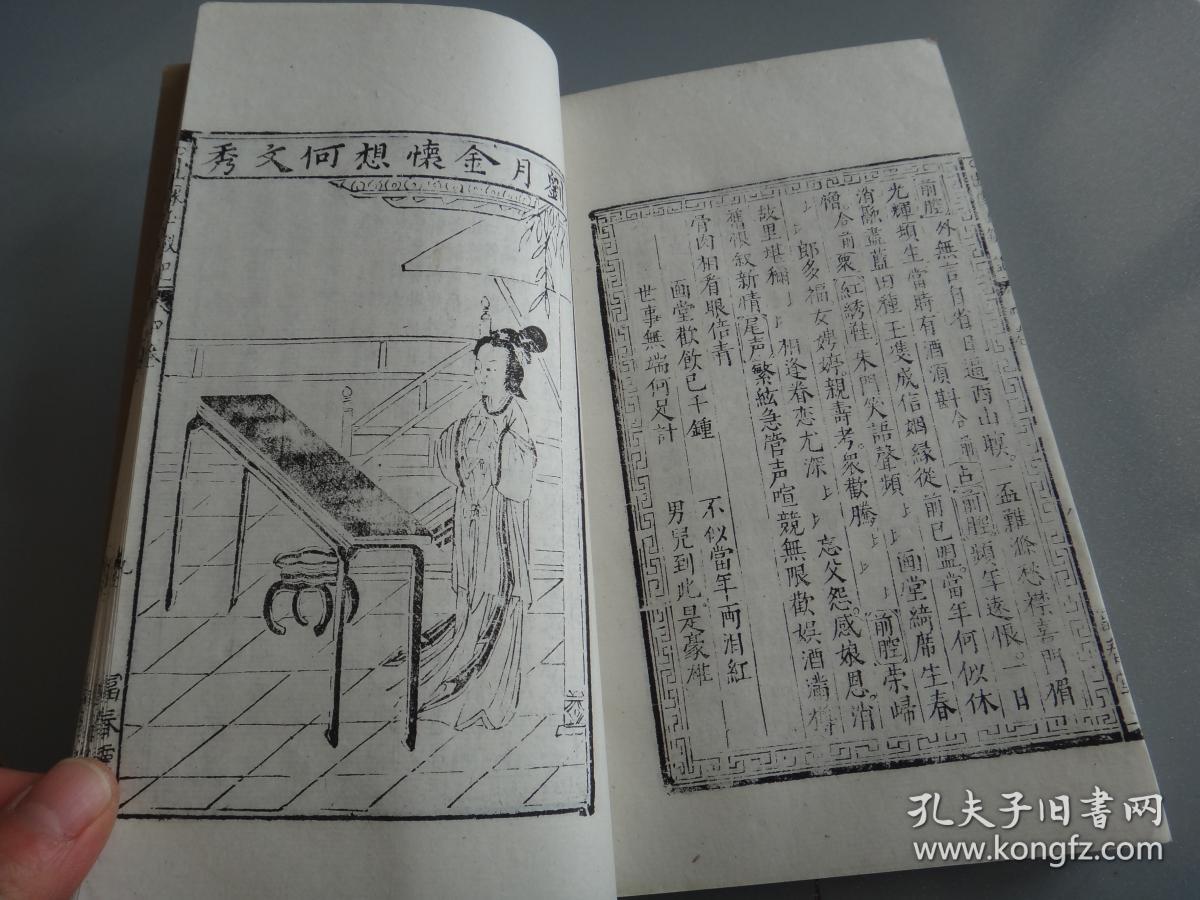 前腔外無言自省日逼西山暝。一盃難滌愁襟喜門楣
光輝頻生當時有酒須斟合前占前腔頻年遠恨一日
消除盡藍田種玉雙成信姻緣從前已盟當年何似休
憎。合前衆紅綉鞋朱門笑語聲頻上上画堂綺席生春
上上郎多福女娉婷。親壽考。衆歡騰上上前腔荣歸
故里堪稱上上相逢眷恋尤深上上忘父怨。感娘恩。消
舊恨叙新情尾声繁絃急管声喧競無限歡娯酒滿樽
骨肉相看眼倍青
画堂歡飲已千鍾 不似當年両泪紅
世事無端何足計 男兒到此是豪雄
劉月金懷想何文秀
富春堂
孔夫子旧书网
www.kongfz.com